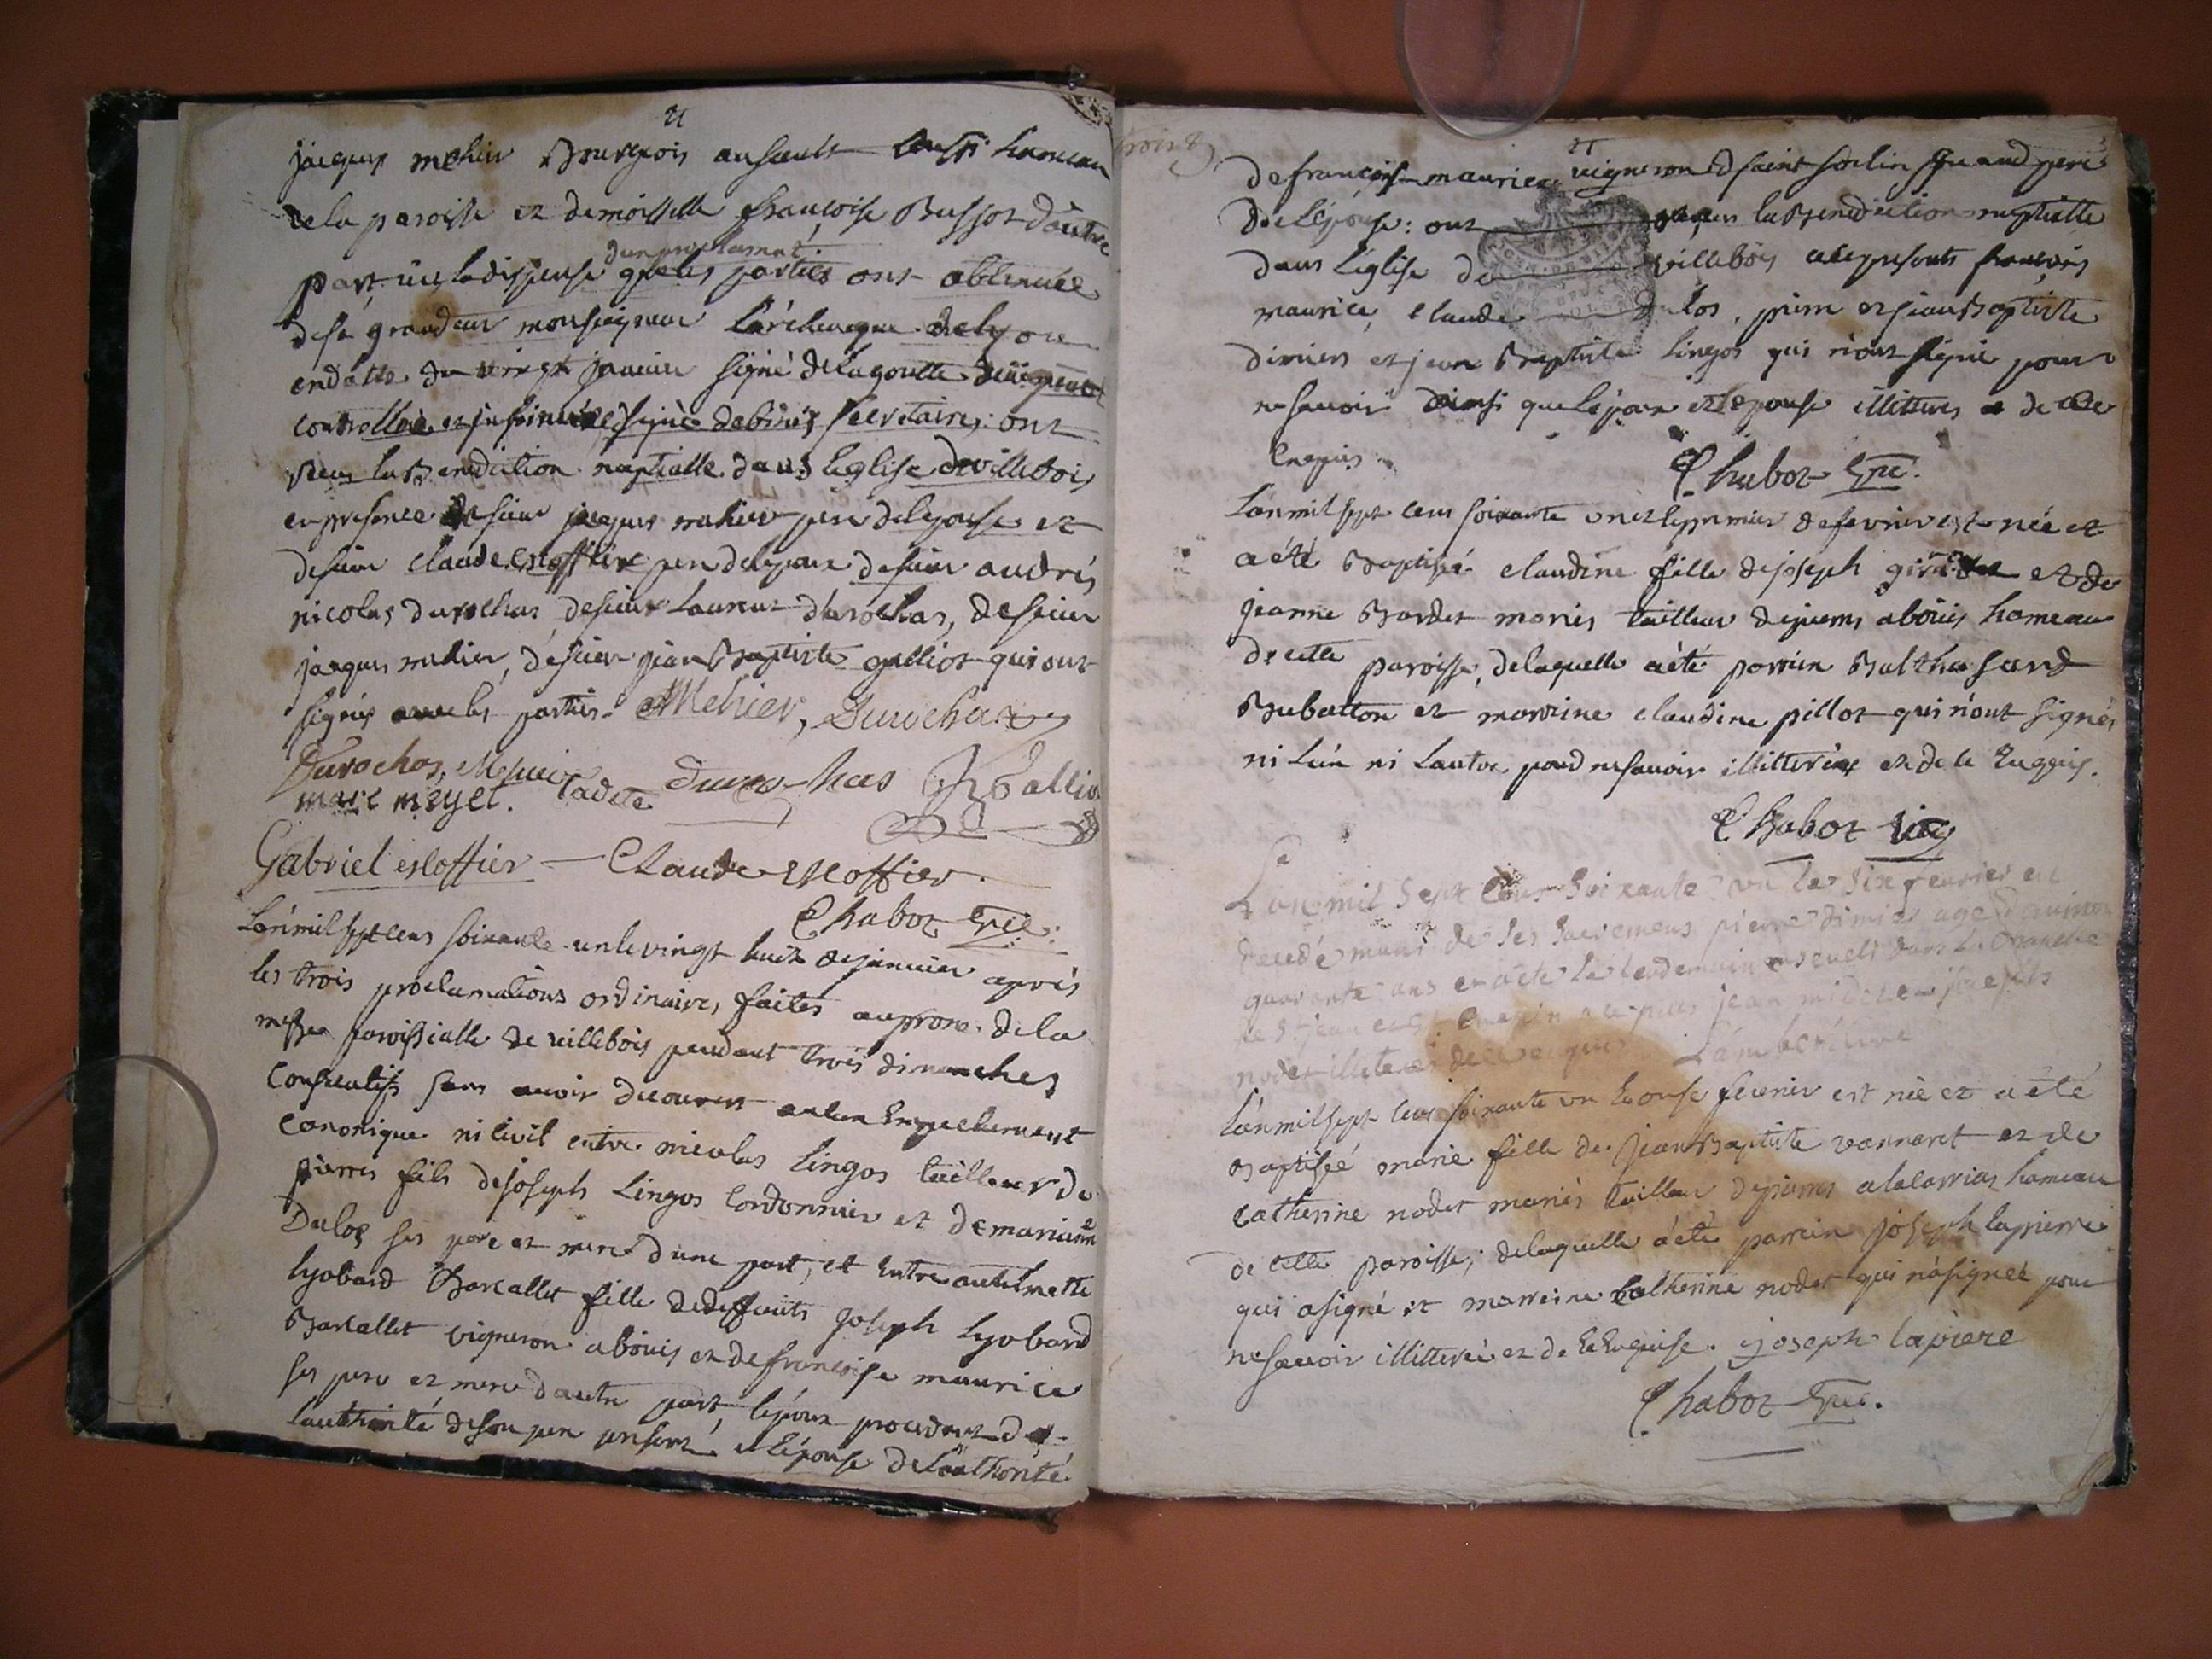 jacques mehier Bourgeois au sault aussi hameau
de la paroisse et demoiselle françoise Bussot d'autre
d'un proclamat
part vu la dispense que les parties ont obtenuë
de sa grandeur monseigneur L'archeveque de lyon
en datte du vingt janvier signé de Lagoutte
controllée et insinuée, signé secretaire; ont
receu la Benediction nuptialle dans l'eglise de villebois
en presence de sieur jacques mehier pere de l'epouse et
de sieur claude escoffier pere de l'epoux de sieur andrés
nicolas durochas, de sieur Laurent durochas, de sieur
jacques mehier, de sieur jean Baptiste galliot qui ont
signés avec les parties. Mehier, Durochas
Durochas, Mehier Cadete durochas Gallio
marc meyet.
Gabriel escoffier — Claude escoffier.
Chabot
L'an mil sept cens soixante un le vingt huit de janvier après
les trois proclamations ordinaires faites au prone de la
messe paroissialle de villebois pendant trois dimanches
consecutifs sans avoir decouvert aucun Empechement
canonique ni civil entre nicolas Lingos tailleur de
pierres fils de joseph Lingos Cordonnier et de marianne
Dulos ses pere et mere d'une part, et Entre antelmette
lyobard Barcallet fille de deffunts joseph lyobard
Barcallet vigneron a bouis et de françoise maurice
ses pere et mere d'autre part, l'epoux procedant de
l'authorité de son pere present, et l'épouse de l'authorité
trois
de françois maurice vigneron de saint sorlin grand pere
de L'épouse: ont reçu la Benediction nuptialle
dans L'église de villebois en presents françois
maurice, claude dulos, pierre et jean Baptiste
dimier et jean Baptiste Lingos qui n'ont signé pour
ne savoir ainsi que L'epoux et L'epouse illitteres de ce
Enquis. Chabot
L'an mil sept cens soixante un et le premier de fevrier est née et
a été Baptisée claudine fille de joseph et de
jeanne Bardet mariés tailleur de pierres a boüis hameau
de cette paroisse, de laquelle a été parrein Balthasard
Bubatton et marreine claudine pillot qui n'ont signés
ni L'un ni L'autre pour ne savoir illitterés et de ce Enquis.
Chabot
L'an mil sept Cens Soixante un le Six fevrier est
decedé muni de ses Sacremens pierre dimier agé d'environ
quarante ans et a été le lendemain enseveli dans
de S. jean jean
nodet illeteres de ce enquis
L'an mil sept cens soixante un Le onse fevrier est née et a été
Baptisée marie fille de jean Baptiste vannaret et de
catherine nodet mariés tailleur de pierres a hameau
de cette paroisse; de laquelle a été parrein joseph lapierre
qui a signé et marreine Catherine nodet qui n'a signée pour
ne savoir illitterée et de ce Enquise. joseph lapiere
Chabot